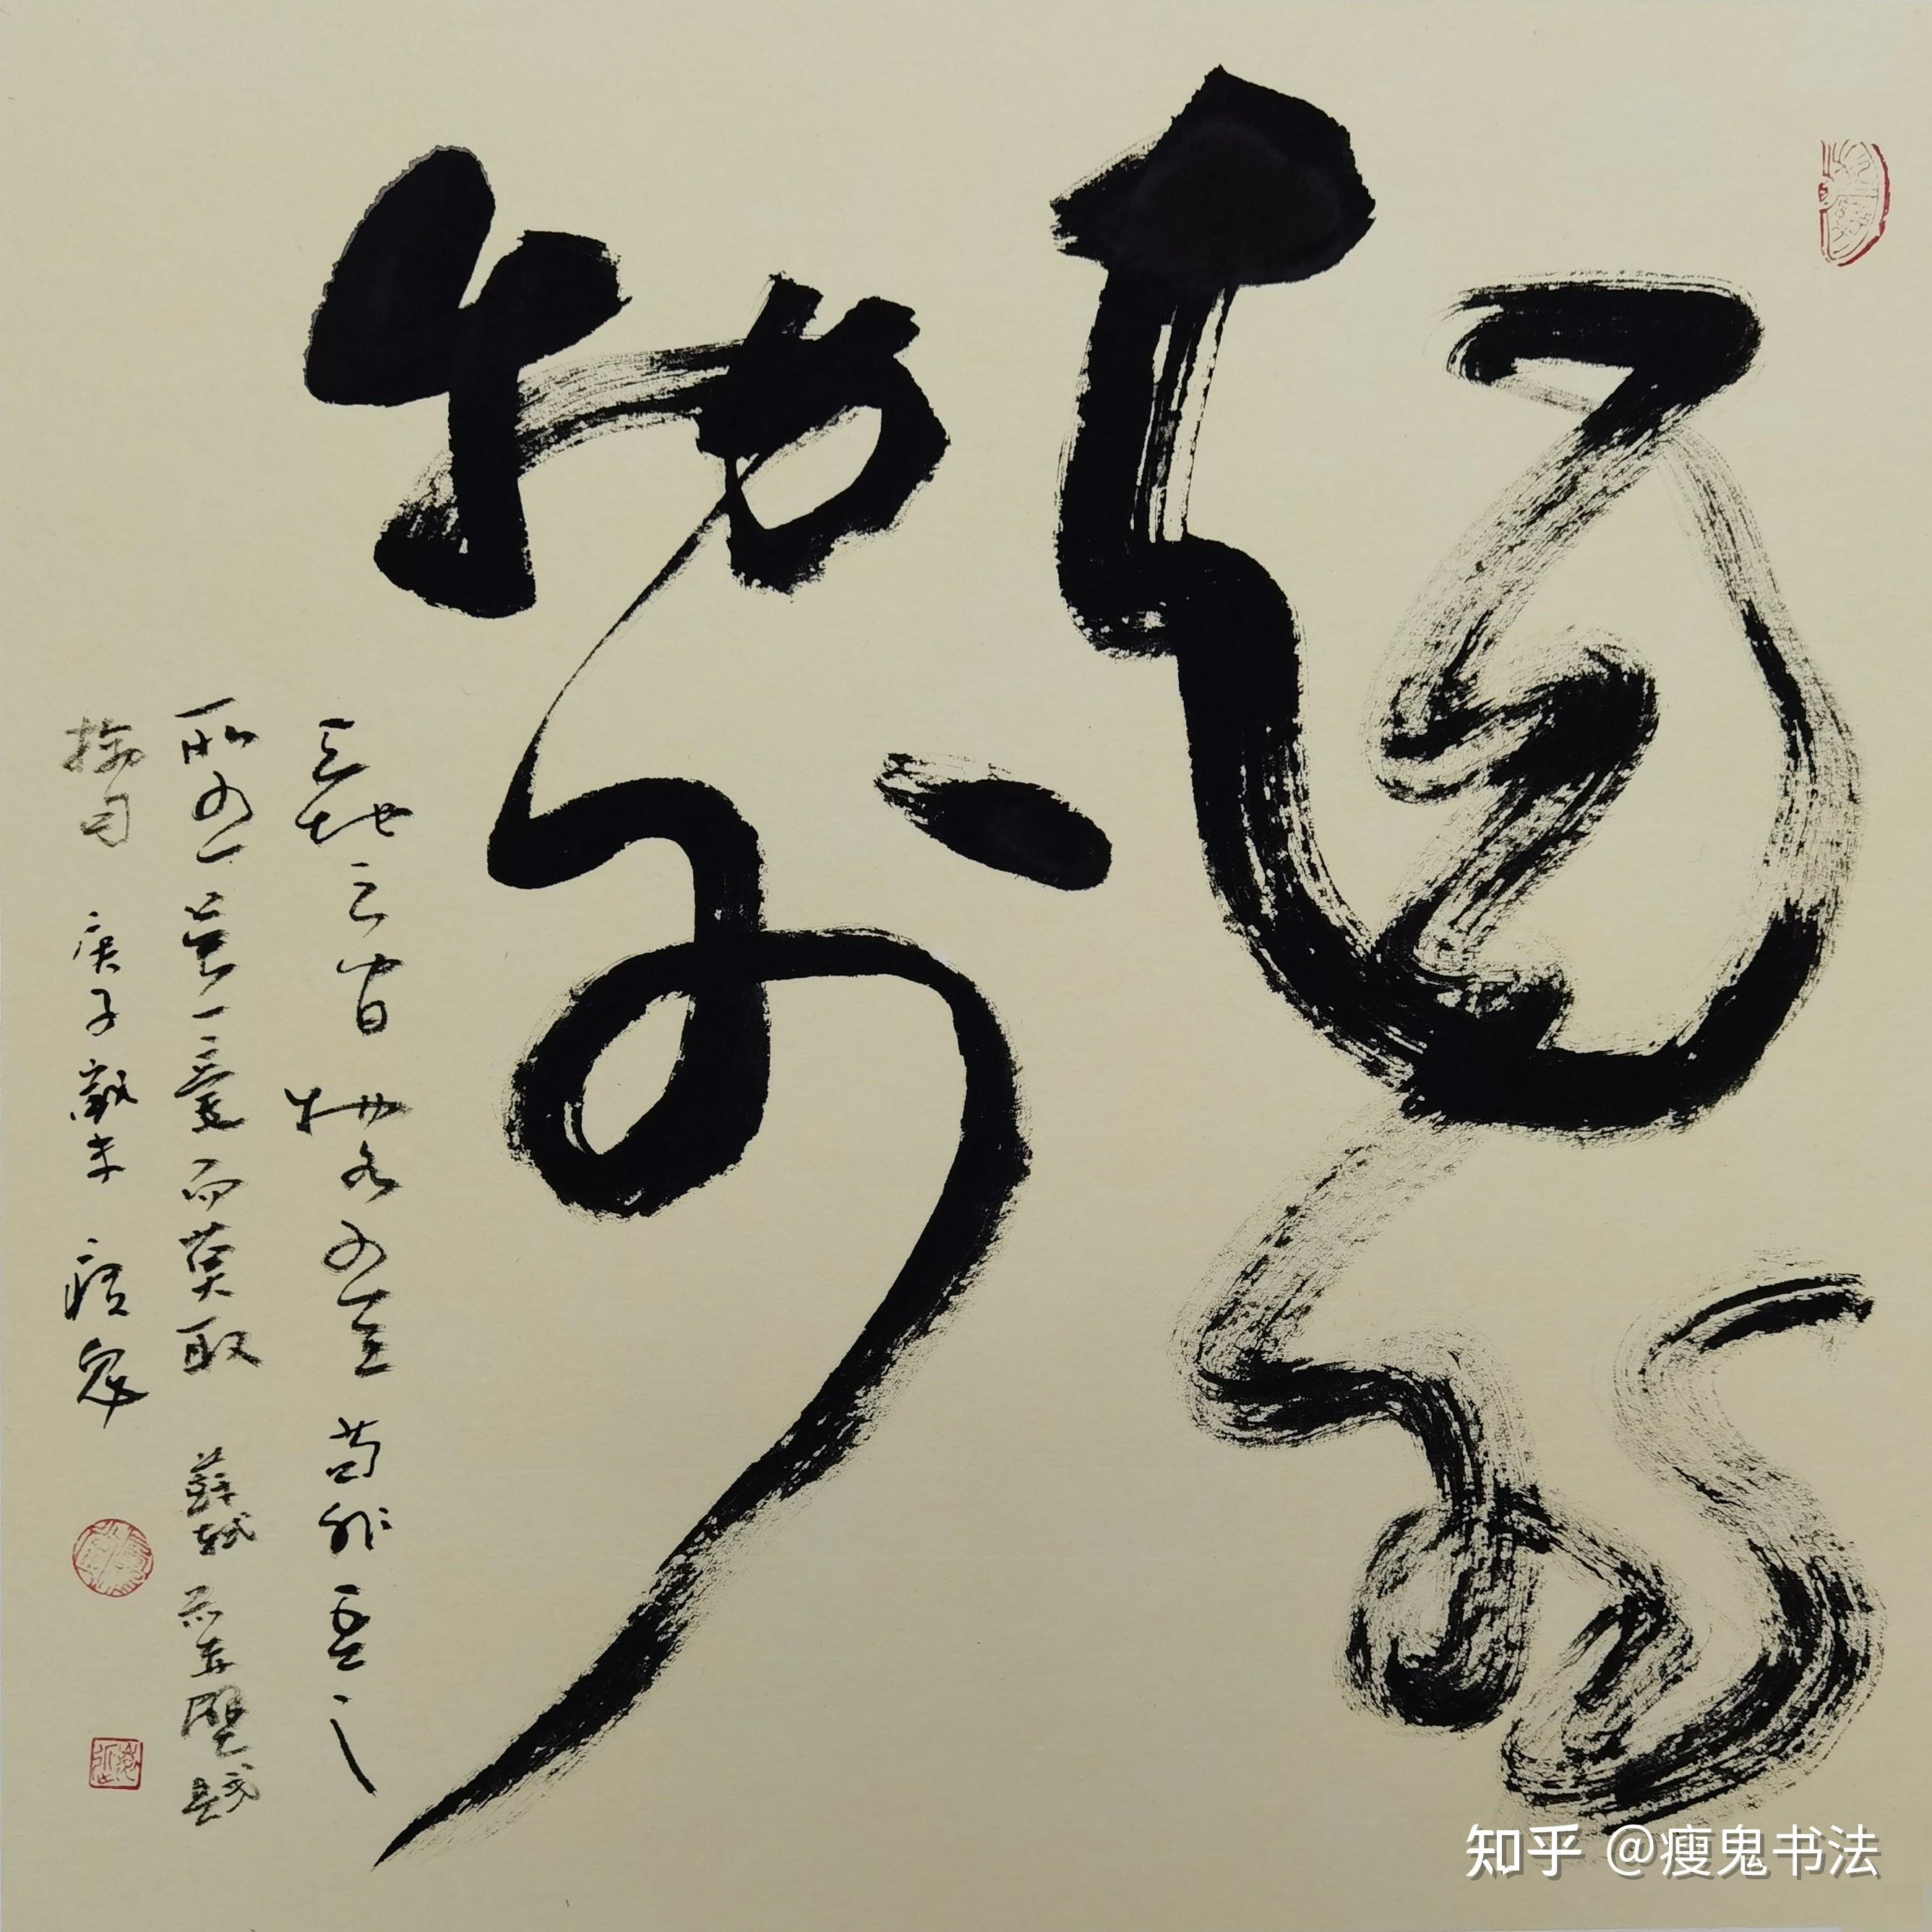 超然
物外
天地之間物各有主苟非吾之
所有雖一毫而莫取 蘇軾前赤壁賦
摘句 庚子歲末 瘦鬼
知乎 @瘦鬼书法